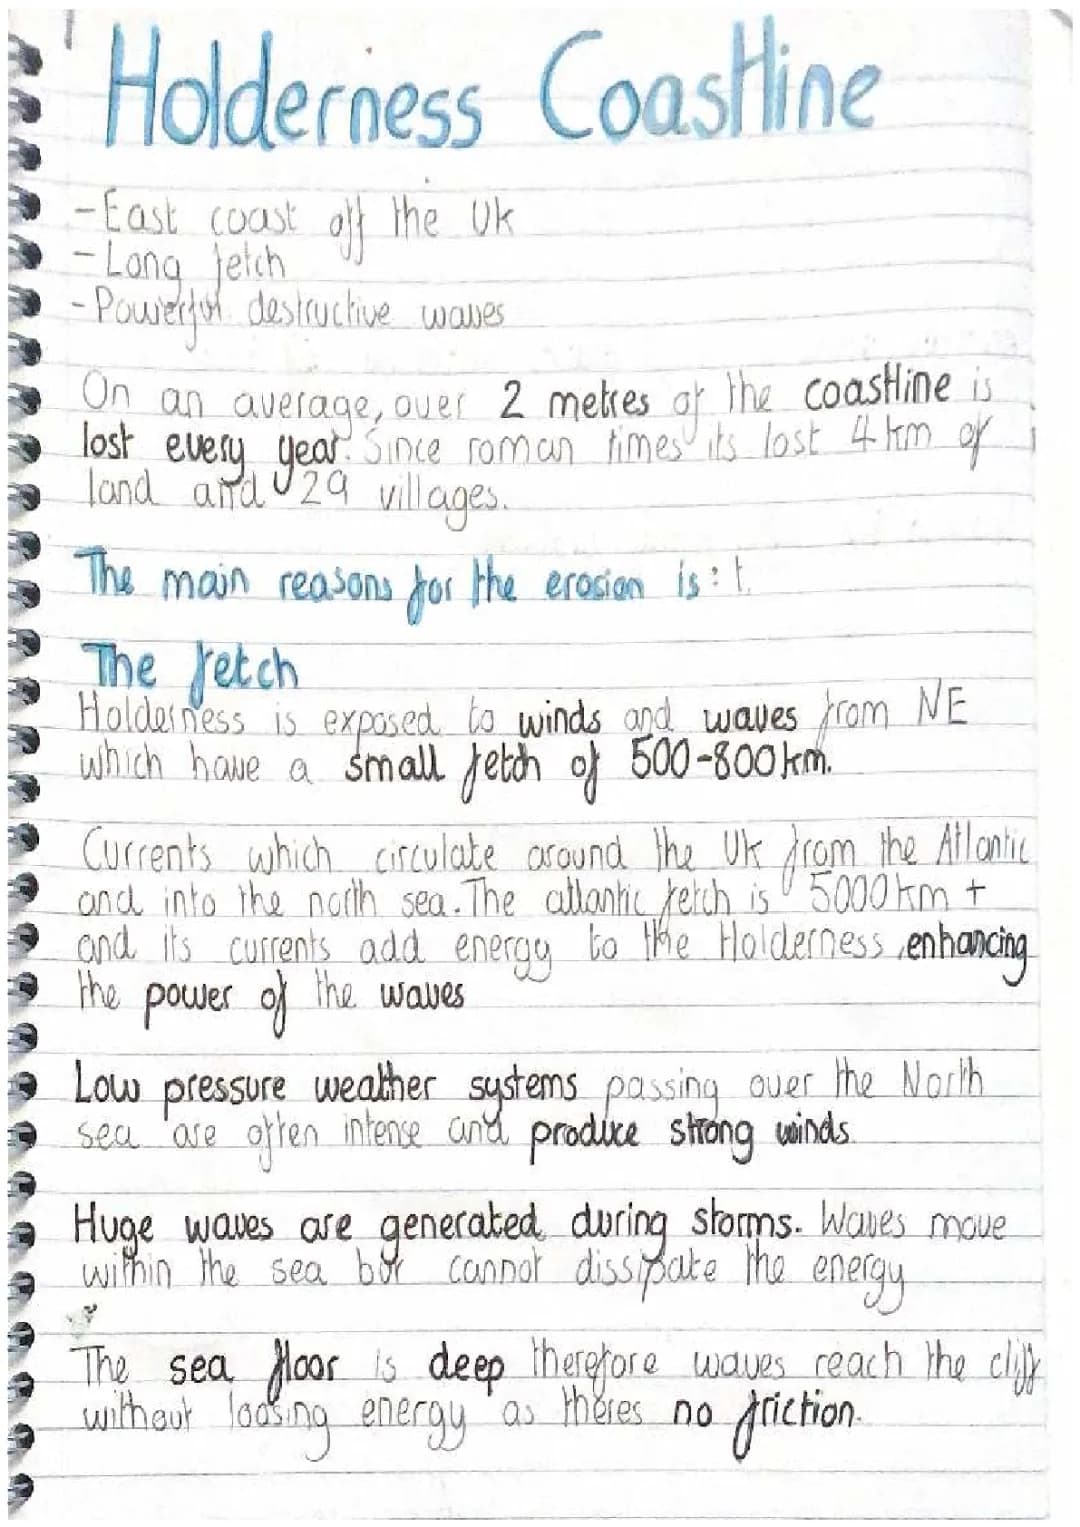 Holderness Coastline
- East coast off the Uk
- Long fetch
- Powerful destructive waves
On an average, over 2 metres of the coastline is
lost every year. Since roman times its lost 4km of
land and 29 villages.
The main reasons for the erosion is: t.
The fetch
Holderness is exposed to winds and waves from NE
which have a small fetch of 500-800km.
Currents which circulate around the Uk from the Atlantic
and into the north sea. The atlantic fetch is 5000km +
and its currents add energy to the Holderness, enhancing
the power of the waves
Low pressure weather systems passing over the North
sea are often intense and produce strong winds.
Huge waves are generated during storms. Waves move
within the sea but cannot dissipate the energy
The sea floor is deep therefore waves reach the cliff
without loosing energy as theres no friction.